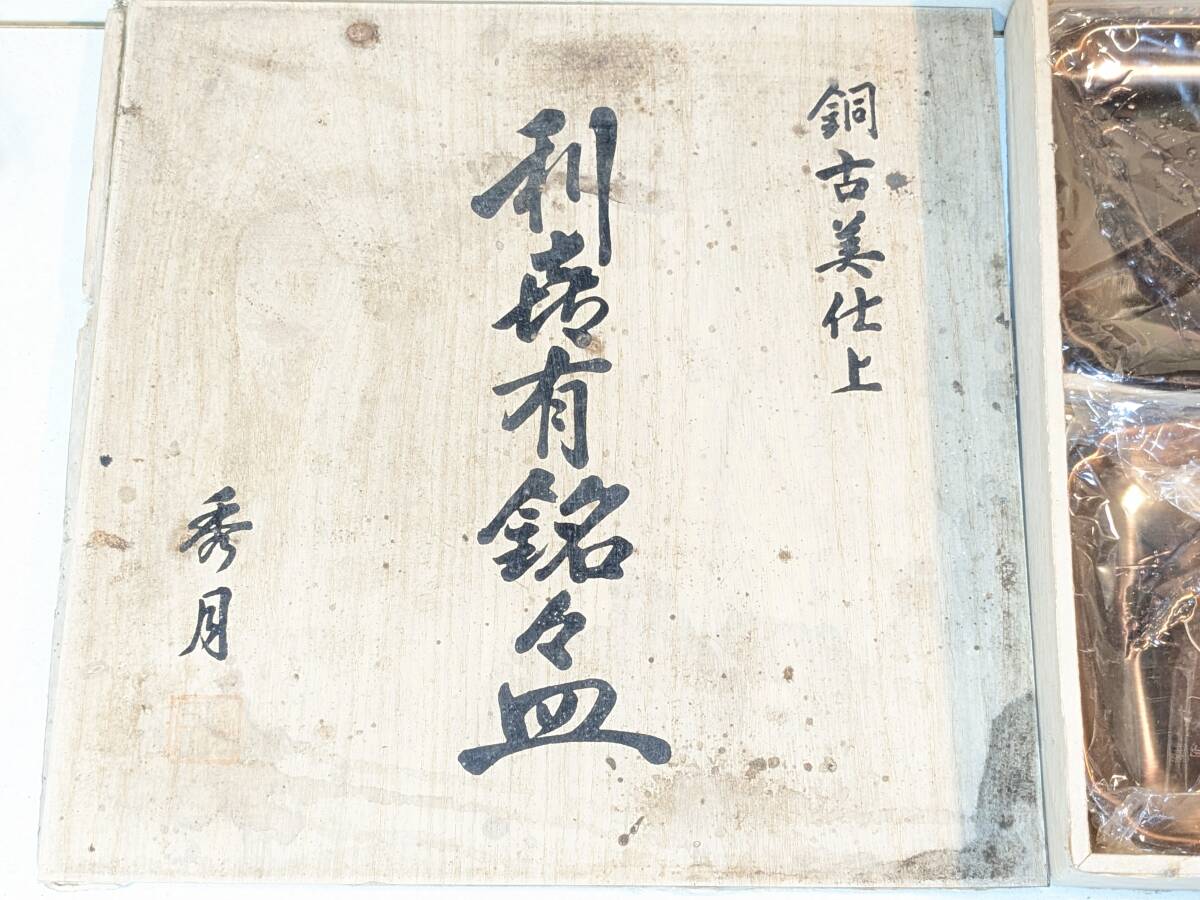 銅古美仕上
利喜有銘々皿
秀月